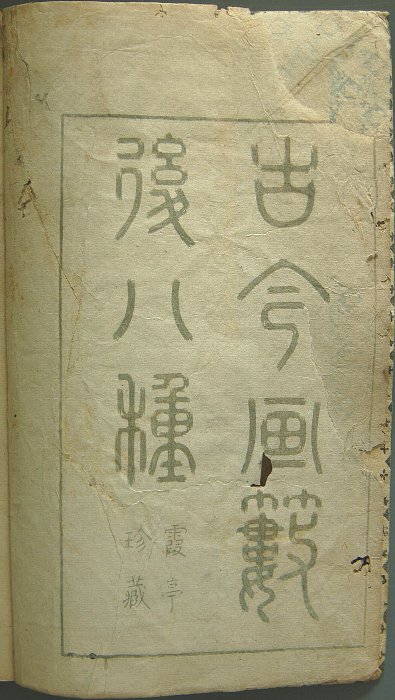 古今画藪
後八種
霞亭
珍藏